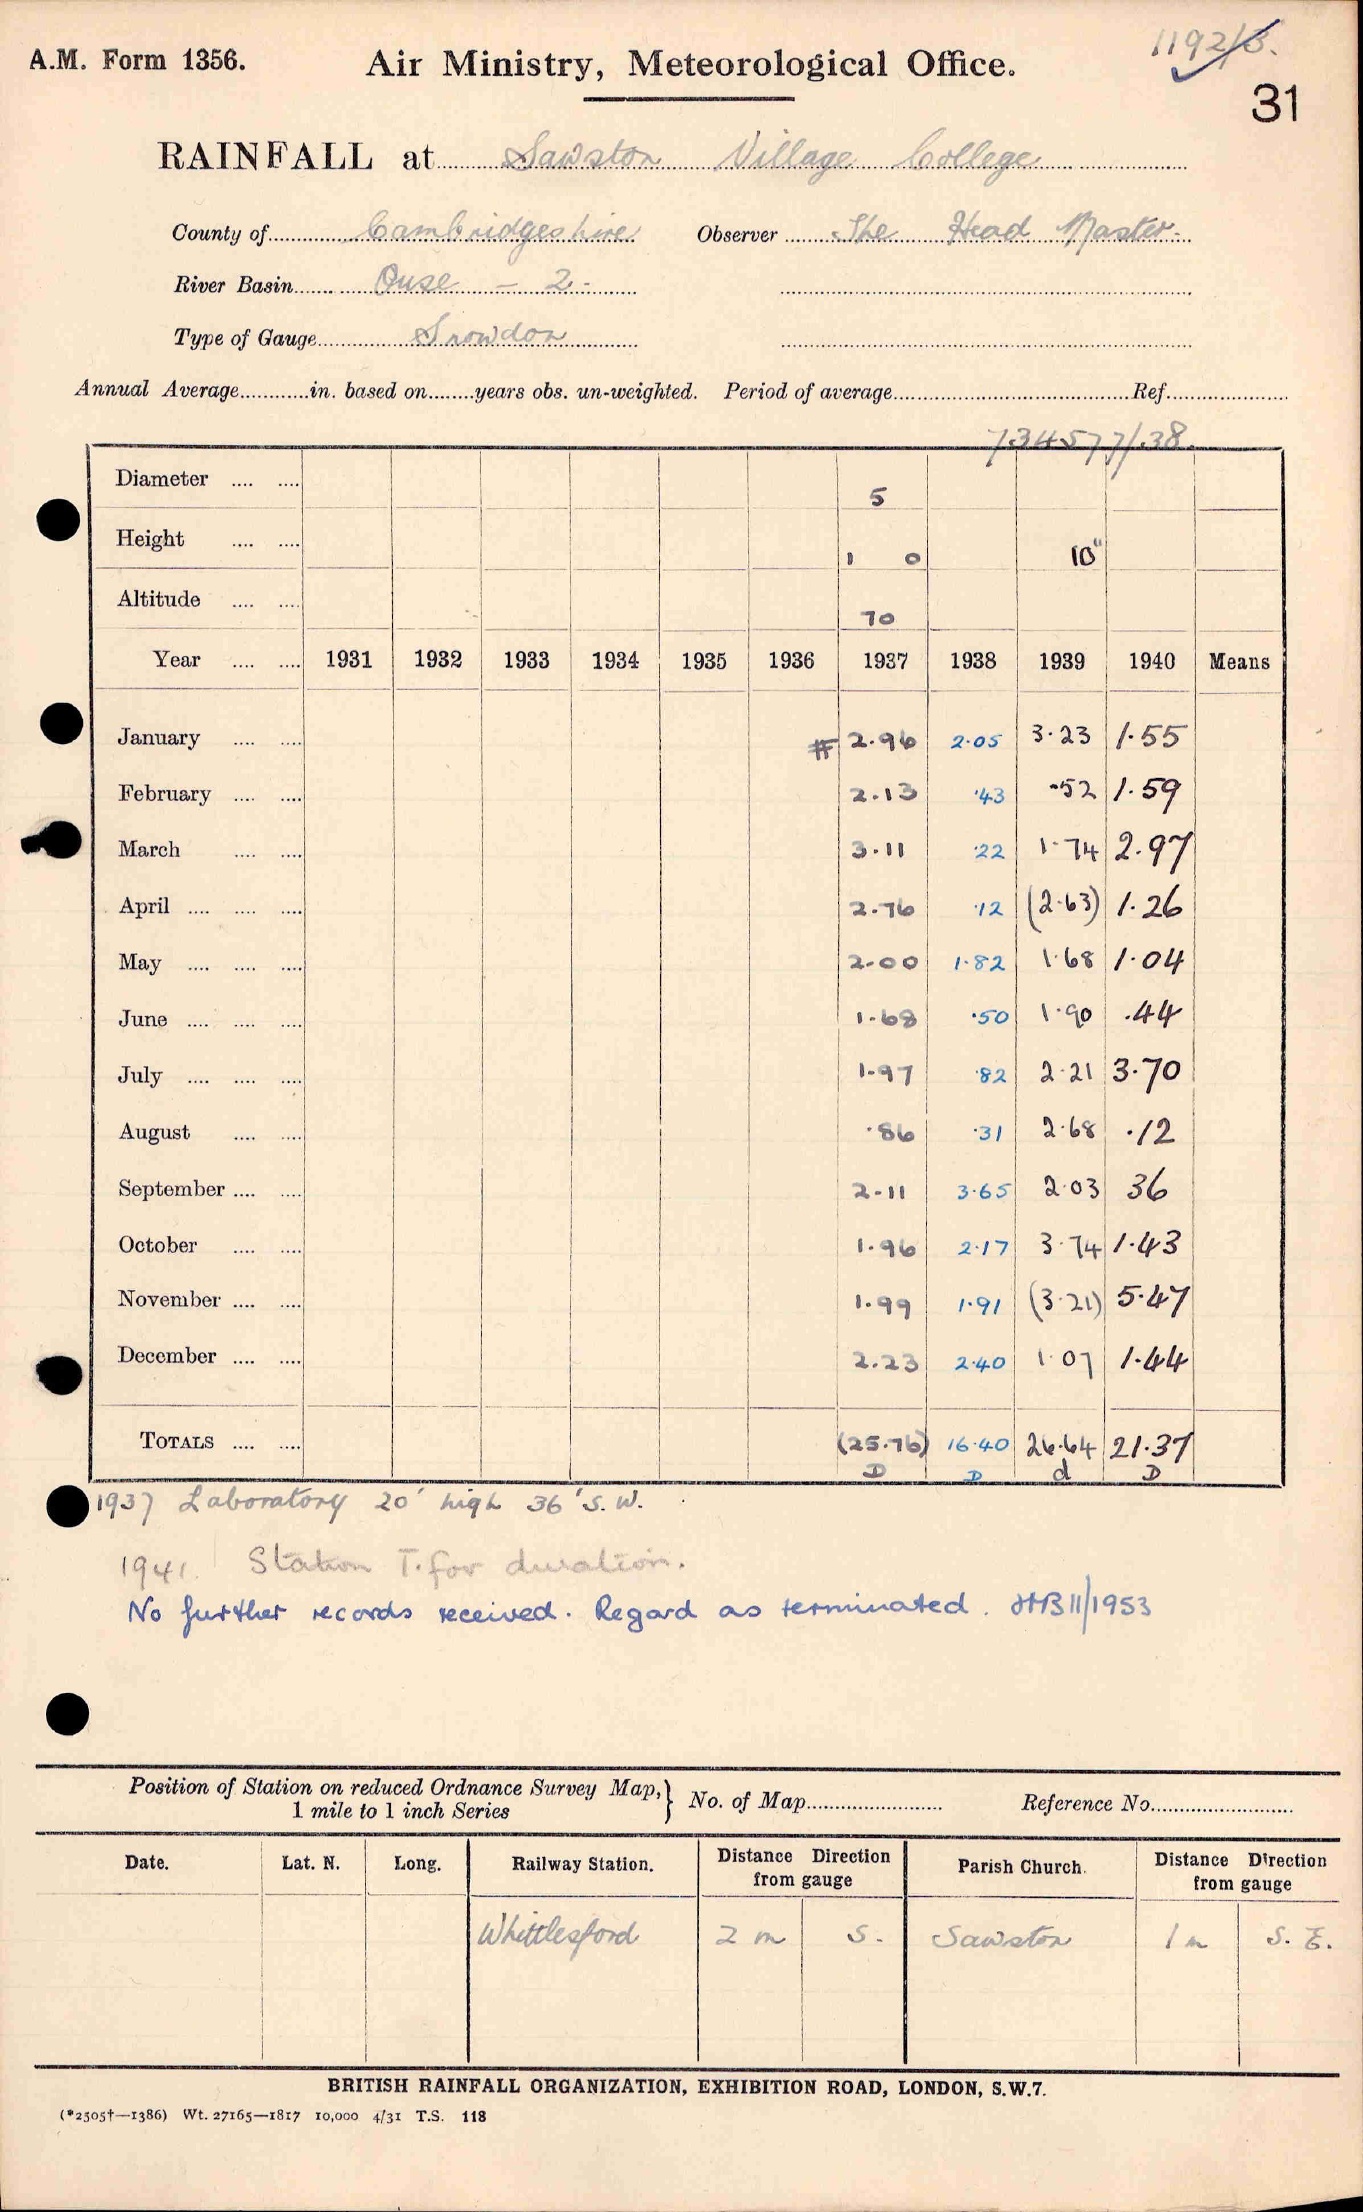 1192/6.
A.M. Form 1356. Air Ministry, Meteorological Office.
31
RAINFALL at Sawston Village College
County of Cambridgeshire Observer The Head Master
River Basin Ouse - 2 -
Type of Gauge Snowdon
Annual Average in. based on years obs. un-weighted. Period of average Ref.
734577/38.
Diameter 5
Height 1 0 10"
Altitude 70
Year 1931 1932 1933 1934 1935 1936 1937 1938 1939 1940 Means
January # 2.96 2.05 3.23 1.55
February 2.13 .43 .52 1.59
March 3.11 .22 1.74 2.97
April 2.76 .12 (2.63) 1.26
May 2.00 1.82 1.68 1.04
June 1.68 .50 1.90 .44
July 1.97 .82 2.21 3.70
August .86 .31 2.68 .12
September 2.11 3.65 2.03 36
October 1.96 2.17 3.74 1.43
November 1.99 1.91 (3.21) 5.47
December 2.23 2.40 1.07 1.44
TOTALS (25.76) 16.40 26.64 21.37
D D d D
1937 Laboratory 20' high 36' S.W.
1941. Station T. for duration.
No further records received. Regard as terminated. HB 11/1953
Position of Station on reduced Ordnance Survey Map, } No. of Map Reference No.
1 mile to 1 inch Series
Date. Lat. N. Long. Railway Station. Distance Direction from gauge Parish Church. Distance Direction from gauge
Whittlesford 2 m S. Sawston 1 m S. E.
BRITISH RAINFALL ORGANIZATION, EXHIBITION ROAD, LONDON, S.W.7.
(*2505†—1386) Wt. 27165—1817 10,000 4/31 T.S. 118